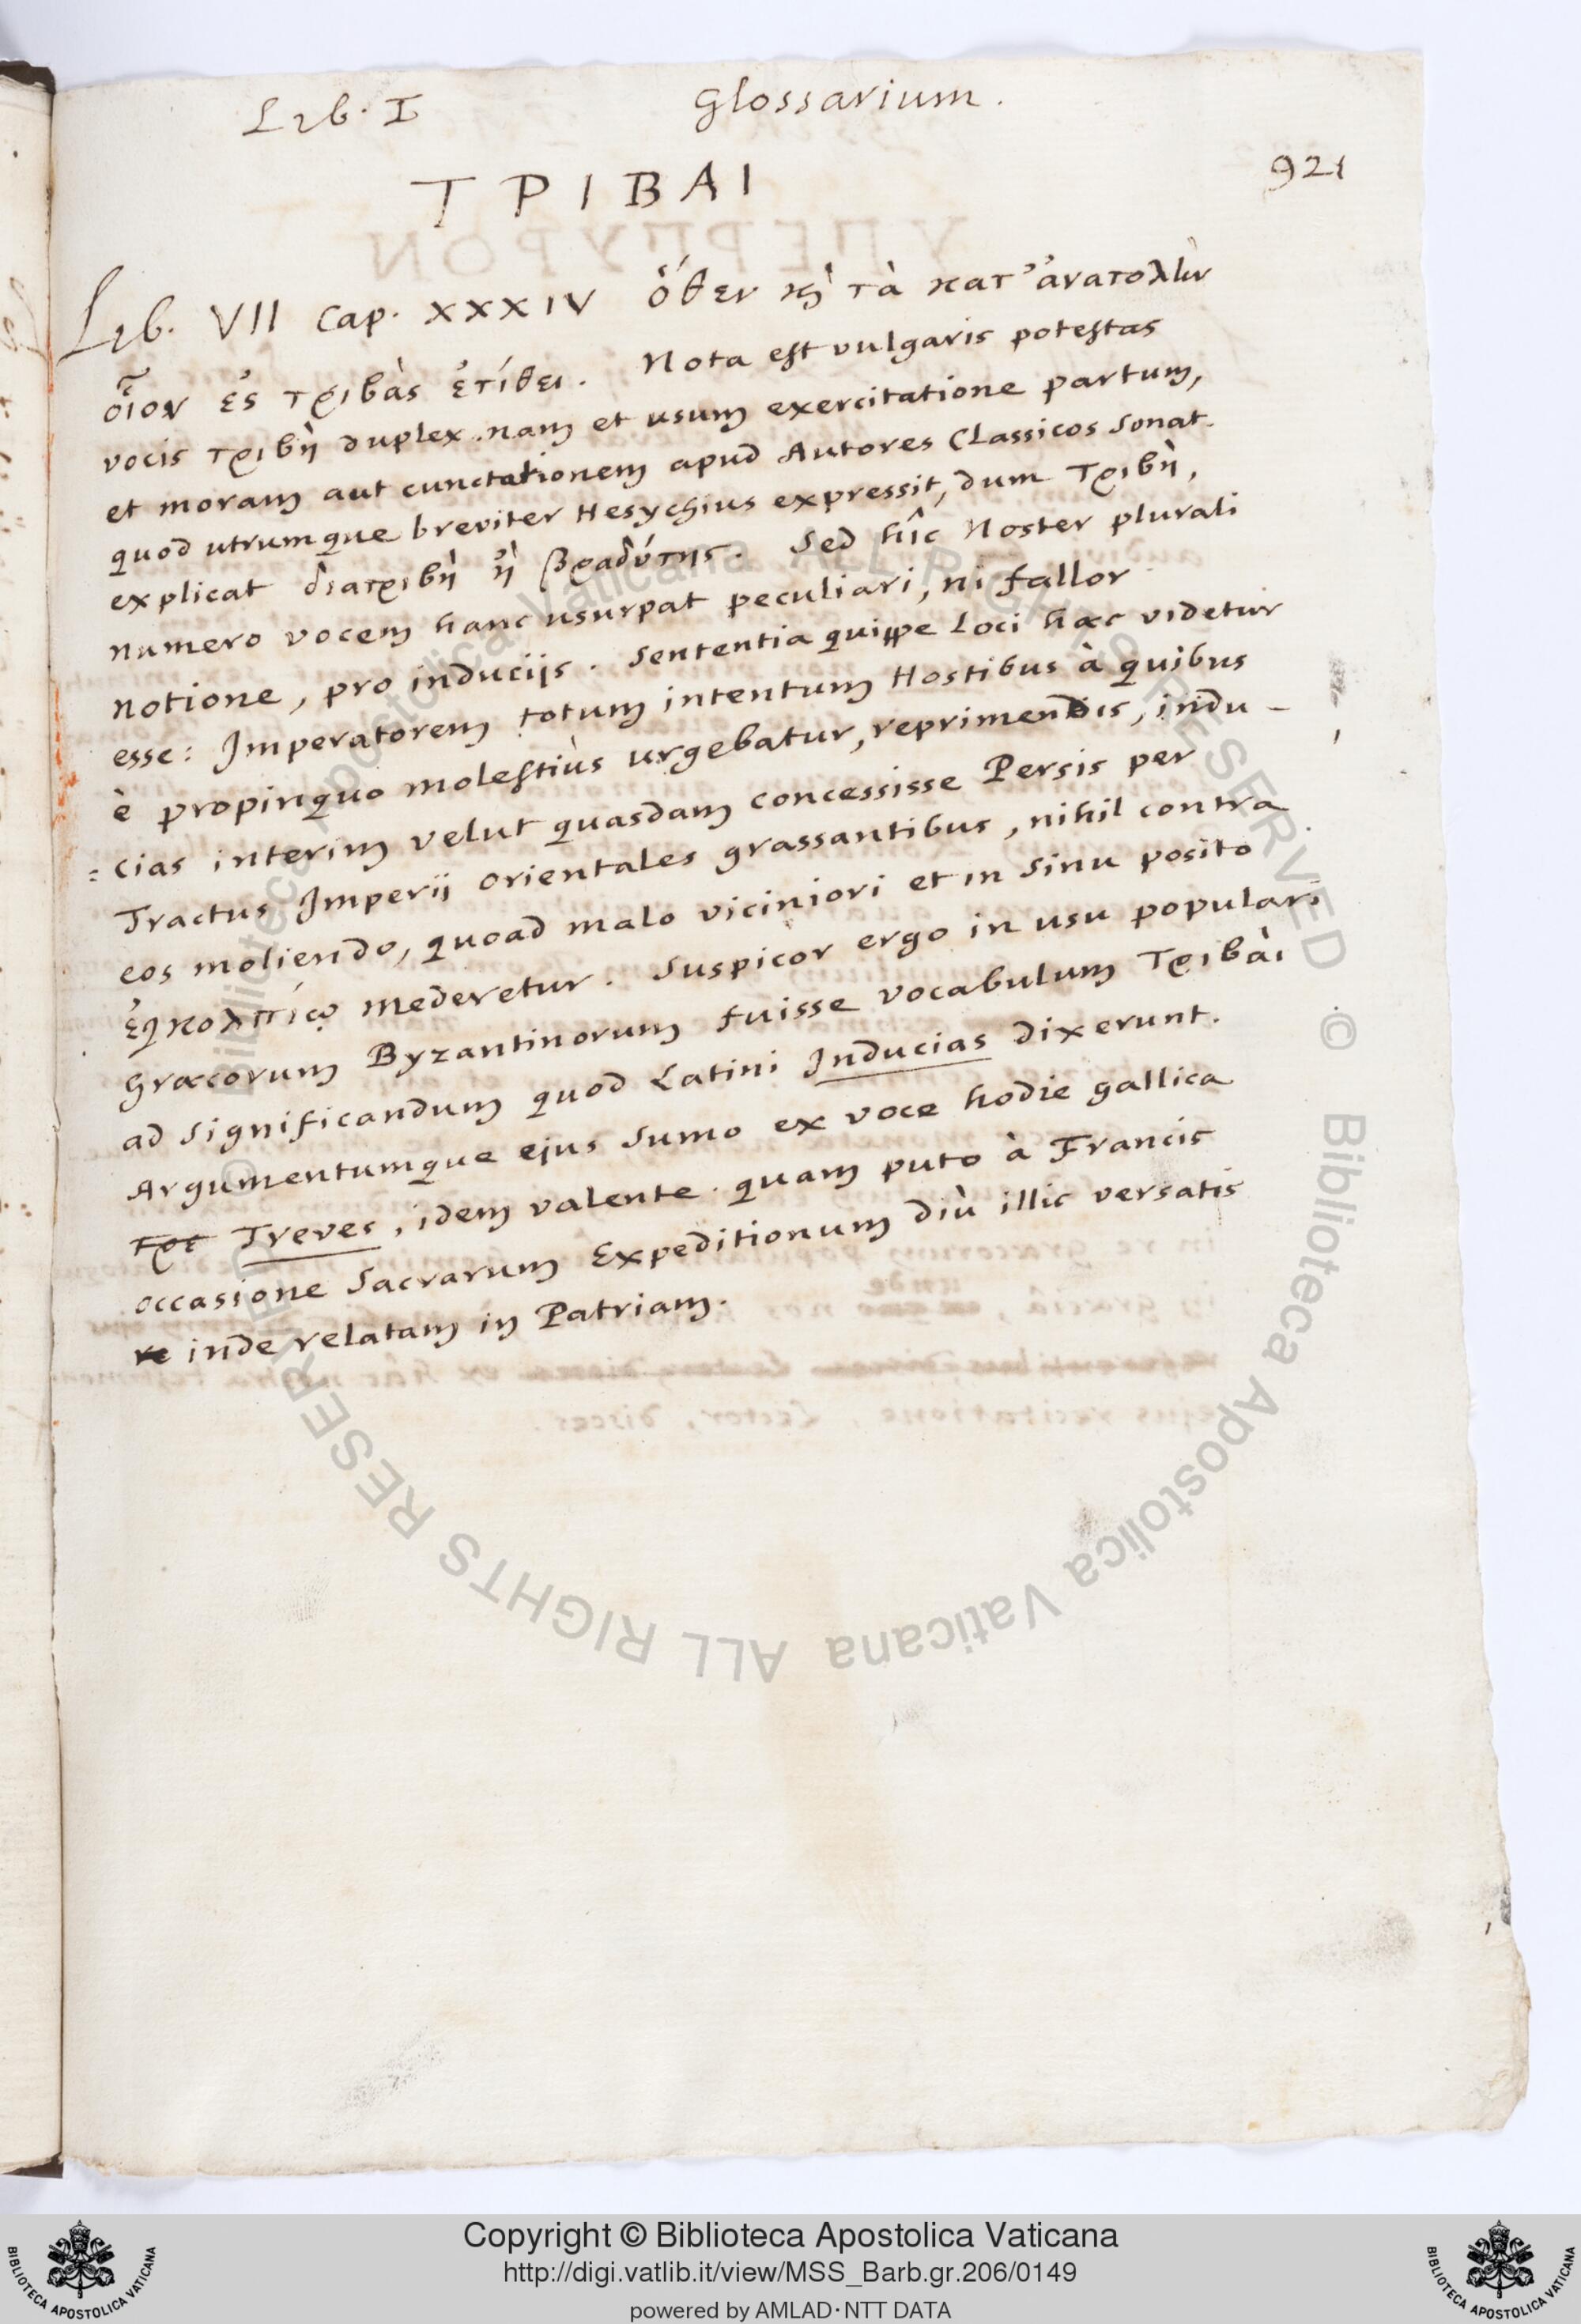 Lib. I Glossarium.
921
ΤΡΙΒΑΙ
Lib. VII Cap. XXXIV ὅθεν κὴ τὰ κατ' ἀνατολὼ
οἷον ἐς τριβὰς ἐτίθει. Nota est vulgaris potestas
vocis τριβὴ duplex. nam et usum exercitatione partum,
et moram aut cunctationem apud Autores Classicos sonat.
quod utrumque breviter Hesychius expressit, dum τριβὴ,
explicat διατριβὴ ἢ βραδύτης. Sed hîc Noster plurali
numero vocem hanc usurpat peculiari, ni fallor
notione, pro inducijs. Sententia quippe loci hæc videtur
esse: Imperatorem totum intentum Hostibus à quibus
è propinquo molestiùs urgebatur, reprimendis, indu-
=cias interim velut quasdam concessisse Persis per
Tractus Imperij orientales grassantibus, nihil contra
eos moliendo, quoad malo viciniori et in sinu posito
ἐγκολπίῳ mederetur. Suspicor ergo in usu populari
Græcorum Byzantinorum fuisse vocabulum τριβὰι
ad significandum quod Latini Inducias dixerunt.
Argumentumque ejus sumo ex voce hodie gallica
Treves, idem valente. quam puto à Francis
occasione Sacrarum Expeditionum diù illic versatis
inde relatam in Patriam.
© Biblioteca Apostolica Vaticana ALL RIGHTS RESERVED © Biblioteca Apostolica Vaticana ALL RIGHTS RESERVED
Copyright © Biblioteca Apostolica Vaticana
http://digi.vatlib.it/view/MSS_Barb.gr.206/0149
powered by AMLAD·NTT DATA
BIBLIOTECA APOSTOLICA VATICANA
BIBLIOTECA APOSTOLICA VATICANA